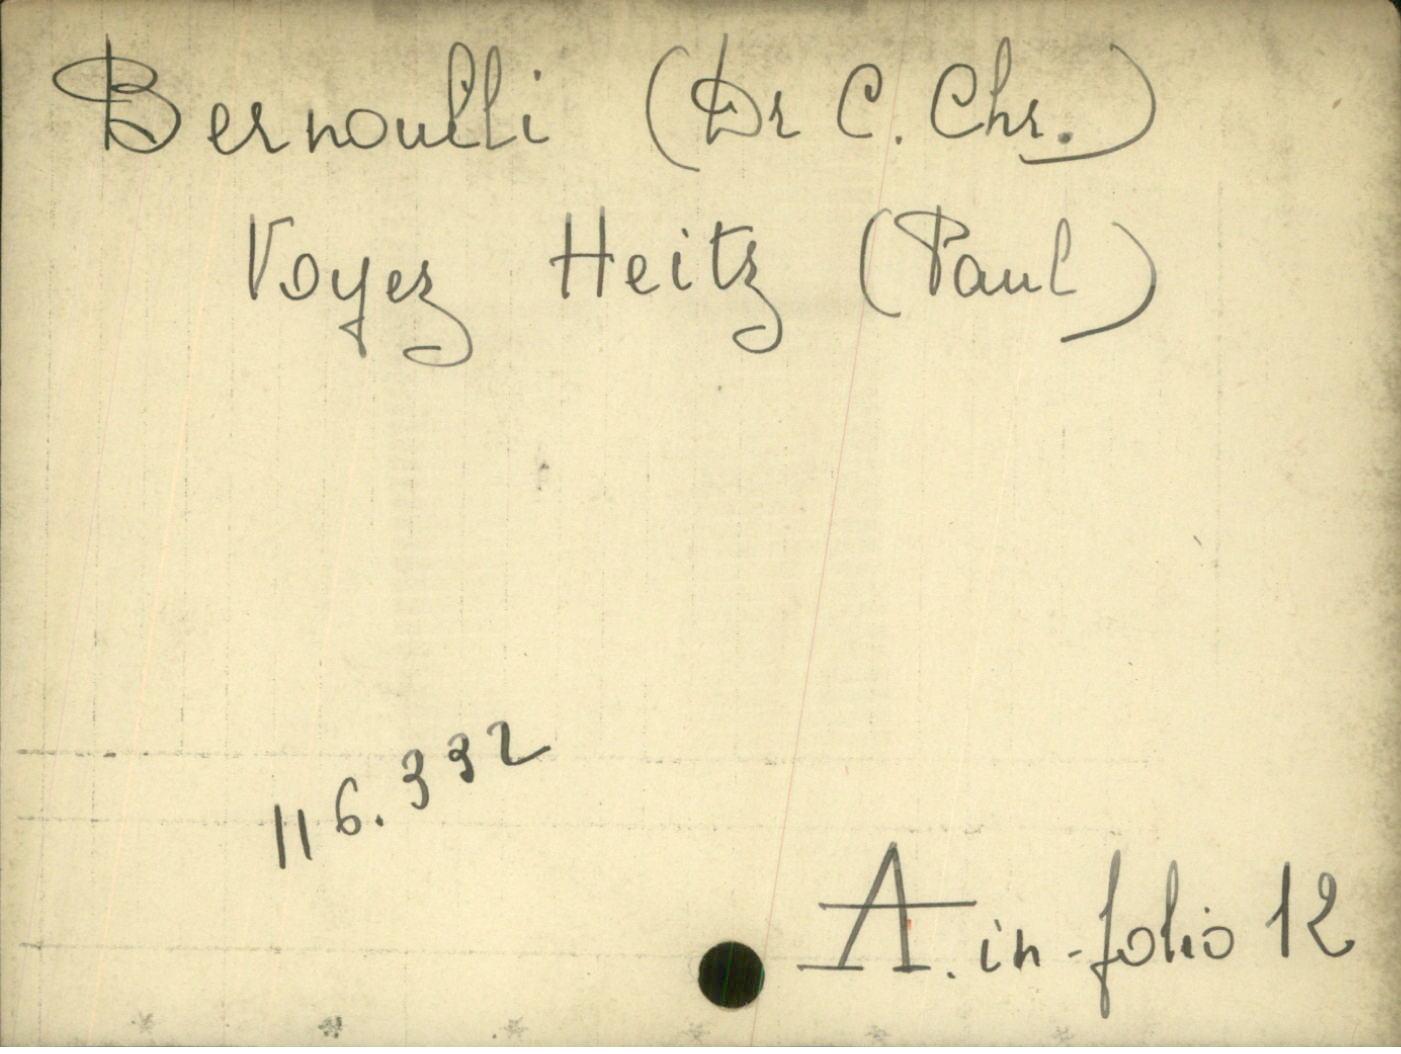 Bernoulli (Dr C. Chr.)
Voyez Heitz (Paul)
116.332
A. in-folio 12